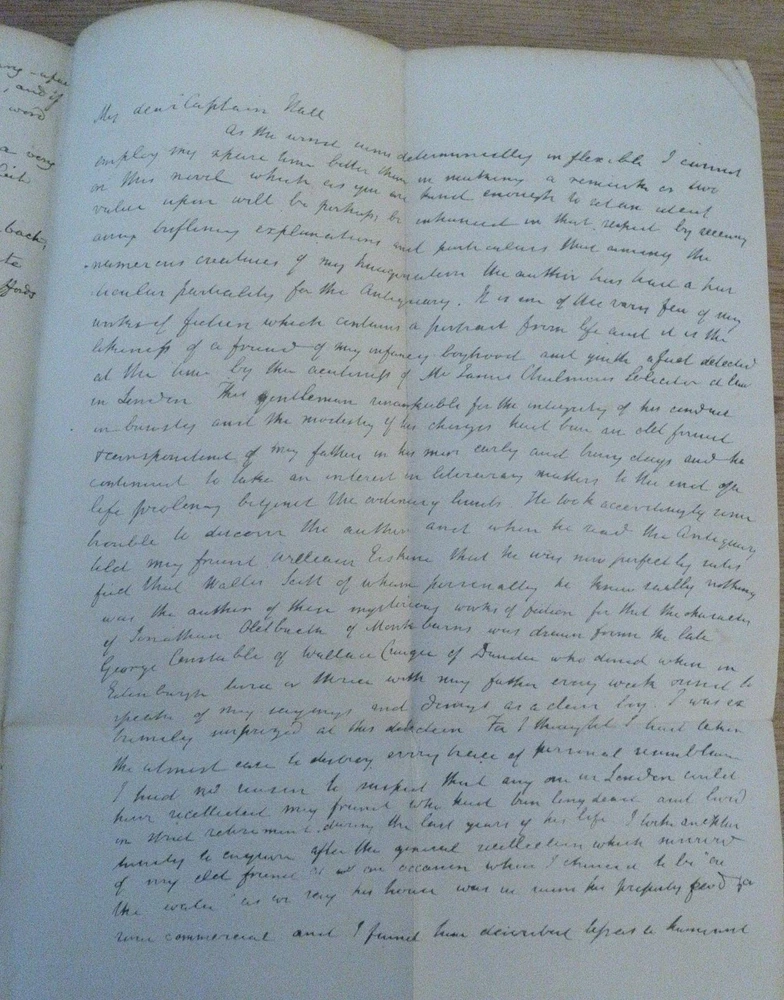 ong - after
, and if
word
a very
back,
My dear Captain Hall
As the wind seems determinedly inflexible I cannot
employ my spare time better than in making a remark or two
on this novel which as you are kind enough to set an ideal
value upon will be perhaps be enhanced in that respect by receiving
any trifling explanations and particulars that among the
numerous creatures of my Imagination the author has had a par
ticular partiality for the Antiquary. It is one of the very few of my
works of fiction which contains a portrait from life and it is the
likeness of a friend of my infancy boyhood and youth a fact detected
at the time by the acuteness of Mr James Chalmers Solicitor at law
in London This gentleman remarkable for the integrity of his conduct
in business and the modesty of his charges had been an old friend
& correspondent of my father in his more early and busy days and he
continued to take an interest in literary matters to the end of a
life prolong beyond the ordinary limits He took accordingly some
trouble to discover the author and when he read the Antiquary
told my friend William Erskine that he was now perfectly satis
fied that Walter Scott of whom personally he knew really nothing
was the author of these mysterious works of fiction for that the character
of Jonathan Oldbuck of Monkbarns was drawn from the late
George Constable of Wallace Craigie of Dundee who dined when in
Edinburgh twice or thrice with my father every week & used to
speak of my sayings and doings as a clever boy. I was ex
tremely surprized at this detection For I thought I had taken
the utmost care to destroy every trace of personal resemblance
I had no reason to suspect that any one in London could
have recollected my friend who had been long dead and lived
in strict retirement during the last years of his life I took an oppor
tunity to enquire after the general recollection which survived
of my old friend on an occasion when I chanced to be "on
the water" as we say his house was in ruins his property feud for
some commercial and I found him described as a humourist